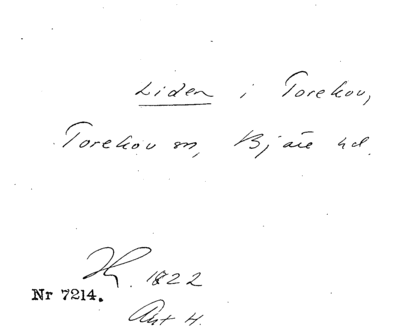 Liden i Torekov,
Torekov sn, Bjäre hd.
1822
Nr 7214.
Akt H.